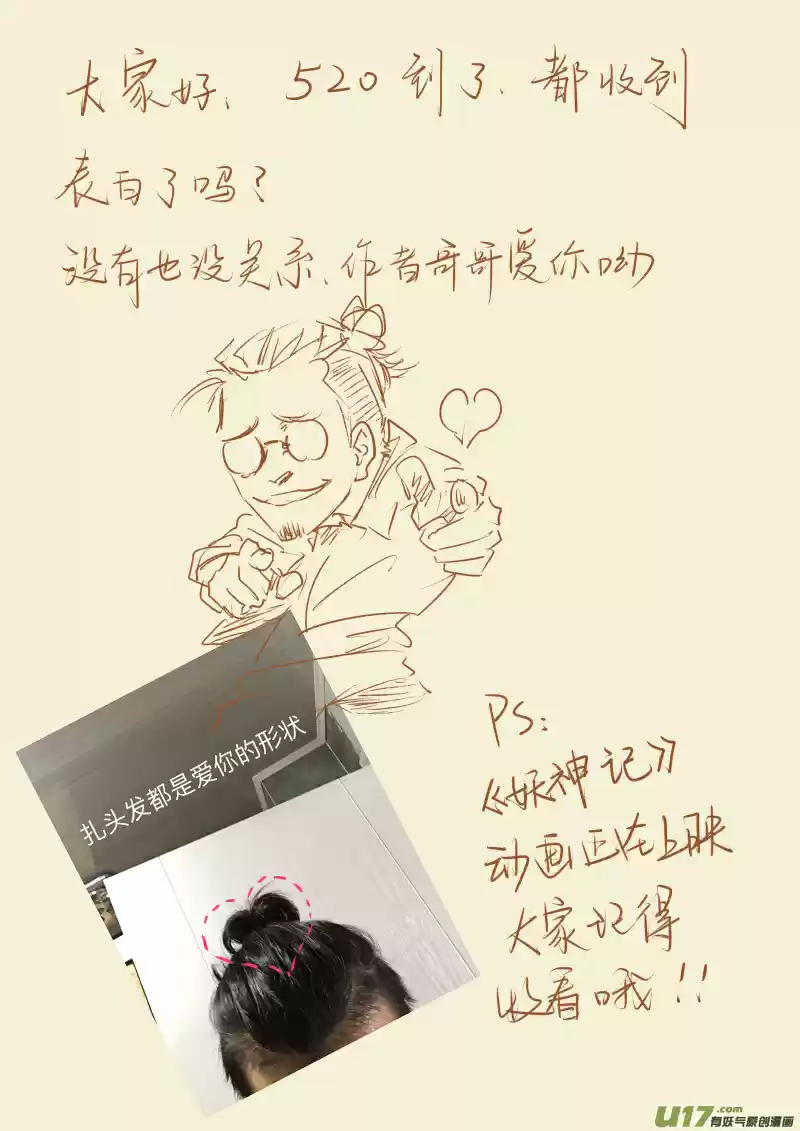 大家好、520到了、都收到
表白了吗?
没有也没关系、作者哥哥爱你呦
扎头发都是爱你的形状
PS:
《妖神记》
动画正在上映
大家记得
收看哦!!
U17.com
有妖气原创漫画